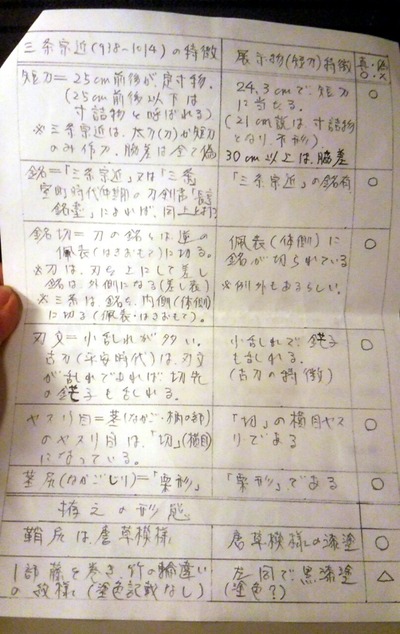 三条宗近(938-1014)の特徴
展示物(短刀)特徴
真・偽
○・×
短刀=25cm前後が定寸物。
(25cm前後以下は
寸詰物と呼ばれる)
※三条宗近は、太刀(刀)か短刀
のみ作刀、脇差は全て偽
24.3cmで短刀
に当たる。
(21cm説は寸詰物
となり不形)
30cm以上は、脇差
○
銘=「三条宗近」又は「三条」
室町時代
の刀剣書
銘盡」によれば、
「三条宗近」の銘有
○
銘切=刀の銘とは逆の
佩表(はきおもて)に切る。
※刀は、刃を上にして差し
銘は、外側になる(差し表)
※三条は、銘を内側(体側)
に切る(佩表・はきおもて)。
佩表(体側)に
銘が切られている
※例外もあるらしい。
○
刃文=小乱れが多い。
古刀(平安時代)は、刃文
が乱れであれば、切先
の鋩子も乱れる。
小乱れで、鋩子
も乱れる。
(古刀の特徴)
○
ヤスリ目=茎(なかご・柄の部)
のヤスリ目は、「切」(横目)
になっている。
「切」の横目ヤス
リである
○
茎尻(なかごじり)=「栗形」
「栗形」である
○
拵えの形態
鞘尻は、唐草模様
唐草模様の漆塗
○
1部藤を巻き竹の輪違い
の紋様(塗色記載なし)
左同で、黒漆塗
(塗色?)
△